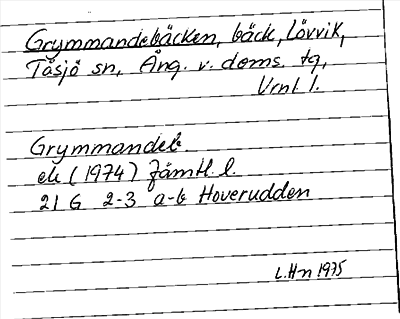 Grymmandebäcken, bäck, Lövvik,
Tåsjö sn, Ång. v. doms. tg,
Vrnl. l.
Grymmandeb.
ek (1974) Jämtl. l.
21 G 2-3 a-b Hoverudden
L.H-n 1975